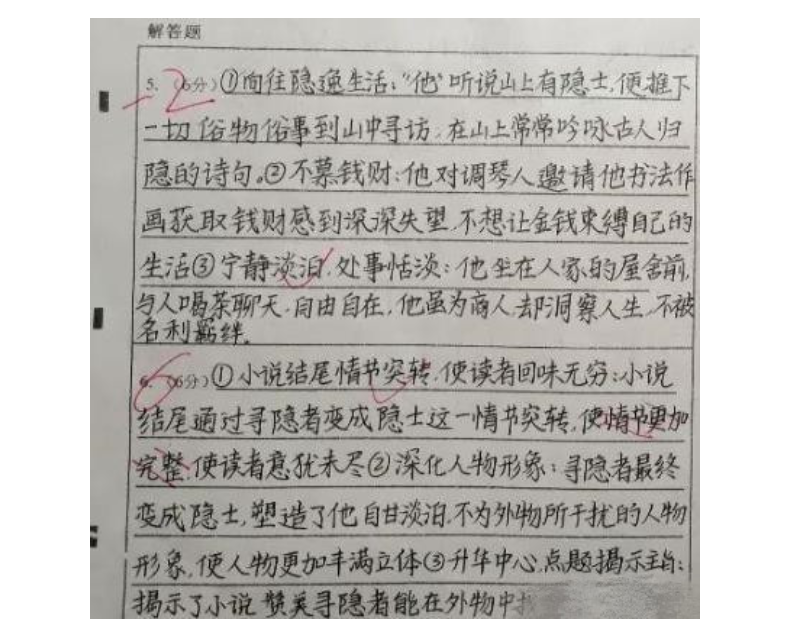 解答题
5. (6分)①向往隐逸生活:"他"听说山上有隐士,便推下
一切俗物俗事到山中寻访;在山上常常吟咏古人归
隐的诗句。②不慕钱财:他对调琴人邀请他书法作
画获取钱财感到深深失望,不想让金钱束缚自己的
生活③宁静淡泊,处事恬淡:他坐在人家的屋舍前,
与人喝茶聊天,自由自在,他虽为商人,却洞察人生,不被
名利羁绊.
-2
6. (6分)①小说结尾情节突转,使读者回味无穷:小说
结尾通过寻隐者变成隐士这一情节突转,使情节更加
完整,使读者意犹未尽②深化人物形象:寻隐者最终
变成隐士,塑造了他自甘淡泊,不为外物所干扰的人物
形象,使人物更加丰满立体③升华中心,点题揭示主旨:
揭示了小说赞美寻隐者能在外物中
6